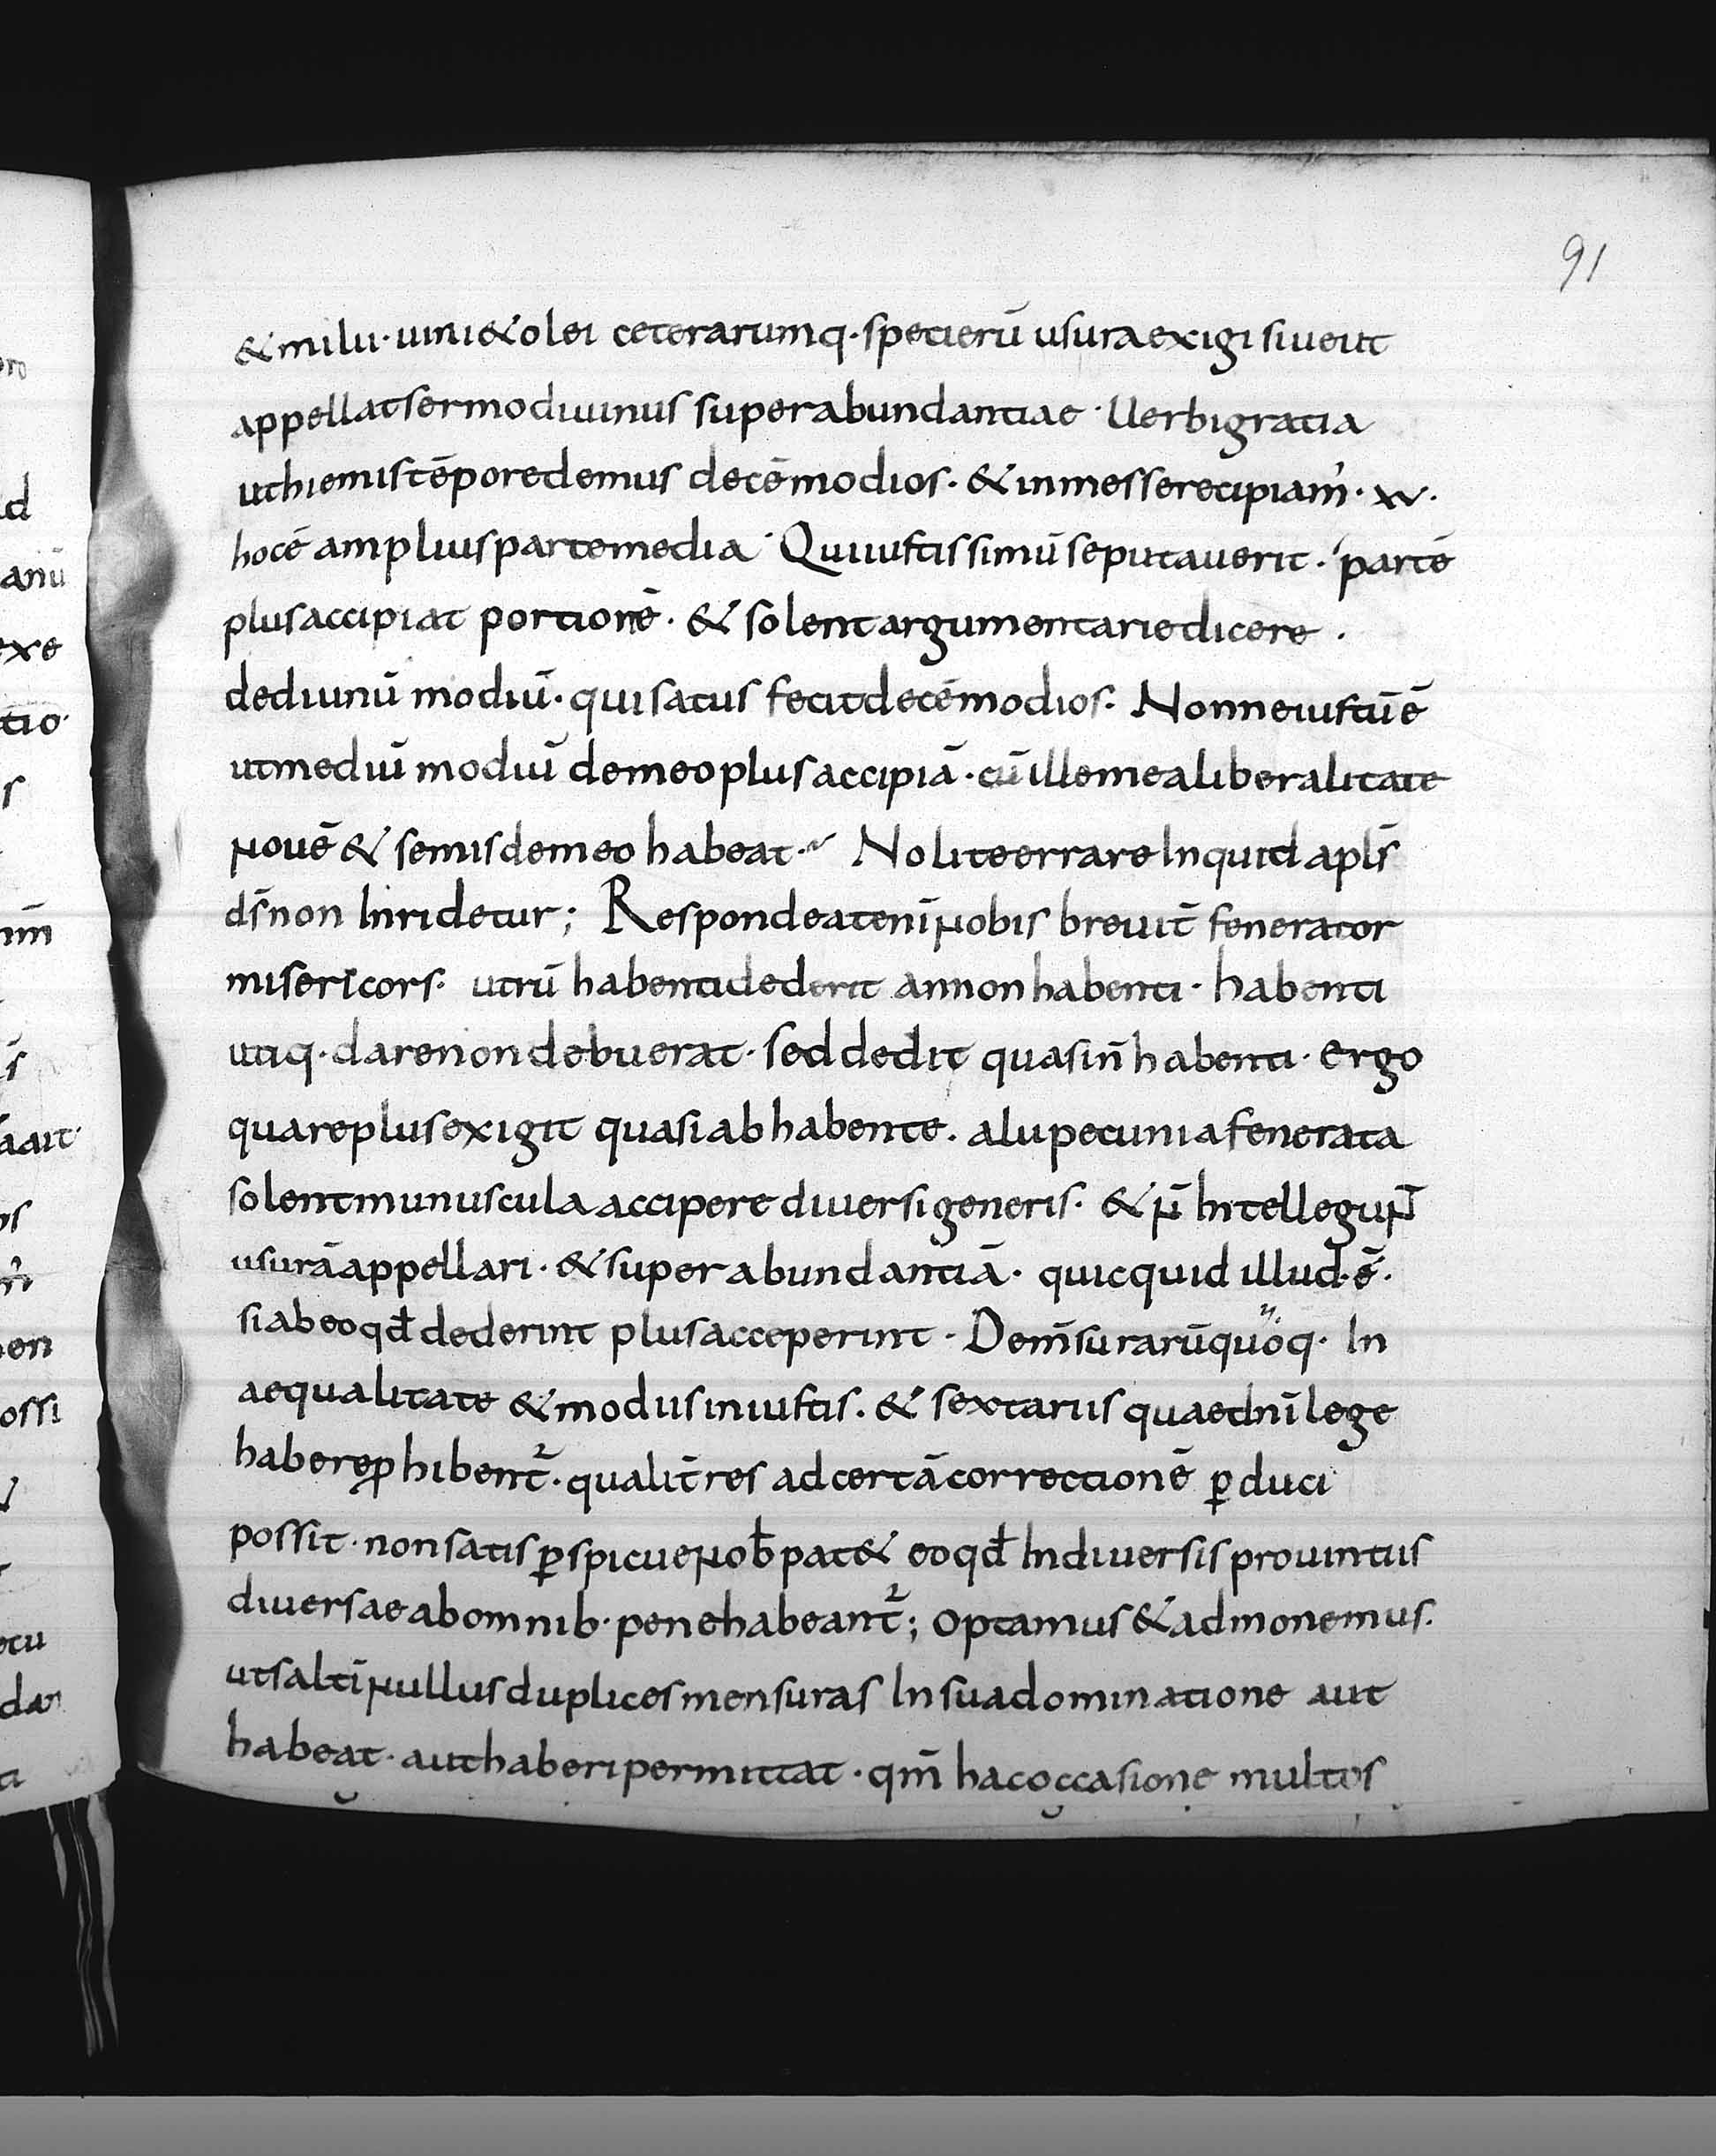 91
& milii· uini & olei ceterarumq· specierū usura exigi siue ut
appellat sermo diuinus superabundantiae · Uerbi gratia
ut hiemis tēpore demus decē modios· & in messe recipiam̄· xv·
hoc ē amplius parte media· Qui iustissimū se putauerit· partē
plus accipiat portionē· & solent argumentari e dicere·
dedi unū modiū· qui satus fecit decē modios· Nonne iustū ē
ut mediū modiū de meo plus accipiā· cū ille mea liberalitate
nouē & semis de meo habeat· Nolite errare Inquid apls̄
ds̄ non Inridetur; Respondeat enī nobis breuit̄ fenerator
misericors· utrū habenti dederit an non habenti· habenti
utiq· dare non debuerat· sed dedit quasi n̄ habenti· ergo
quare plus exigit quasi ab habente· alii pecunia fenerata
solent munuscula accipere diuersi generis· & n̄ Intellegun̄t
usurā appellari· & superabundantiā· quicquid illud· ē·
si ab eo qd̄ dederint plus acceperint· De m̄surarū quoq· In
aequalitate & modiis iniustis· & sextariis quae dn̄i lege
habere ꝓhibent̄· qualit̄ res ad certā correctionē ꝑduci
possit· non satis ꝑspicue nob̄ pat& eo qd̄ In diuersis prouintiis
diuersae ab omnib· pene habeant̄; optamus & admonemus·
ut saltī nullus duplices mensuras In sua dominatione aut
habeat· aut haberi permittat· qm̄ hac occasione multos